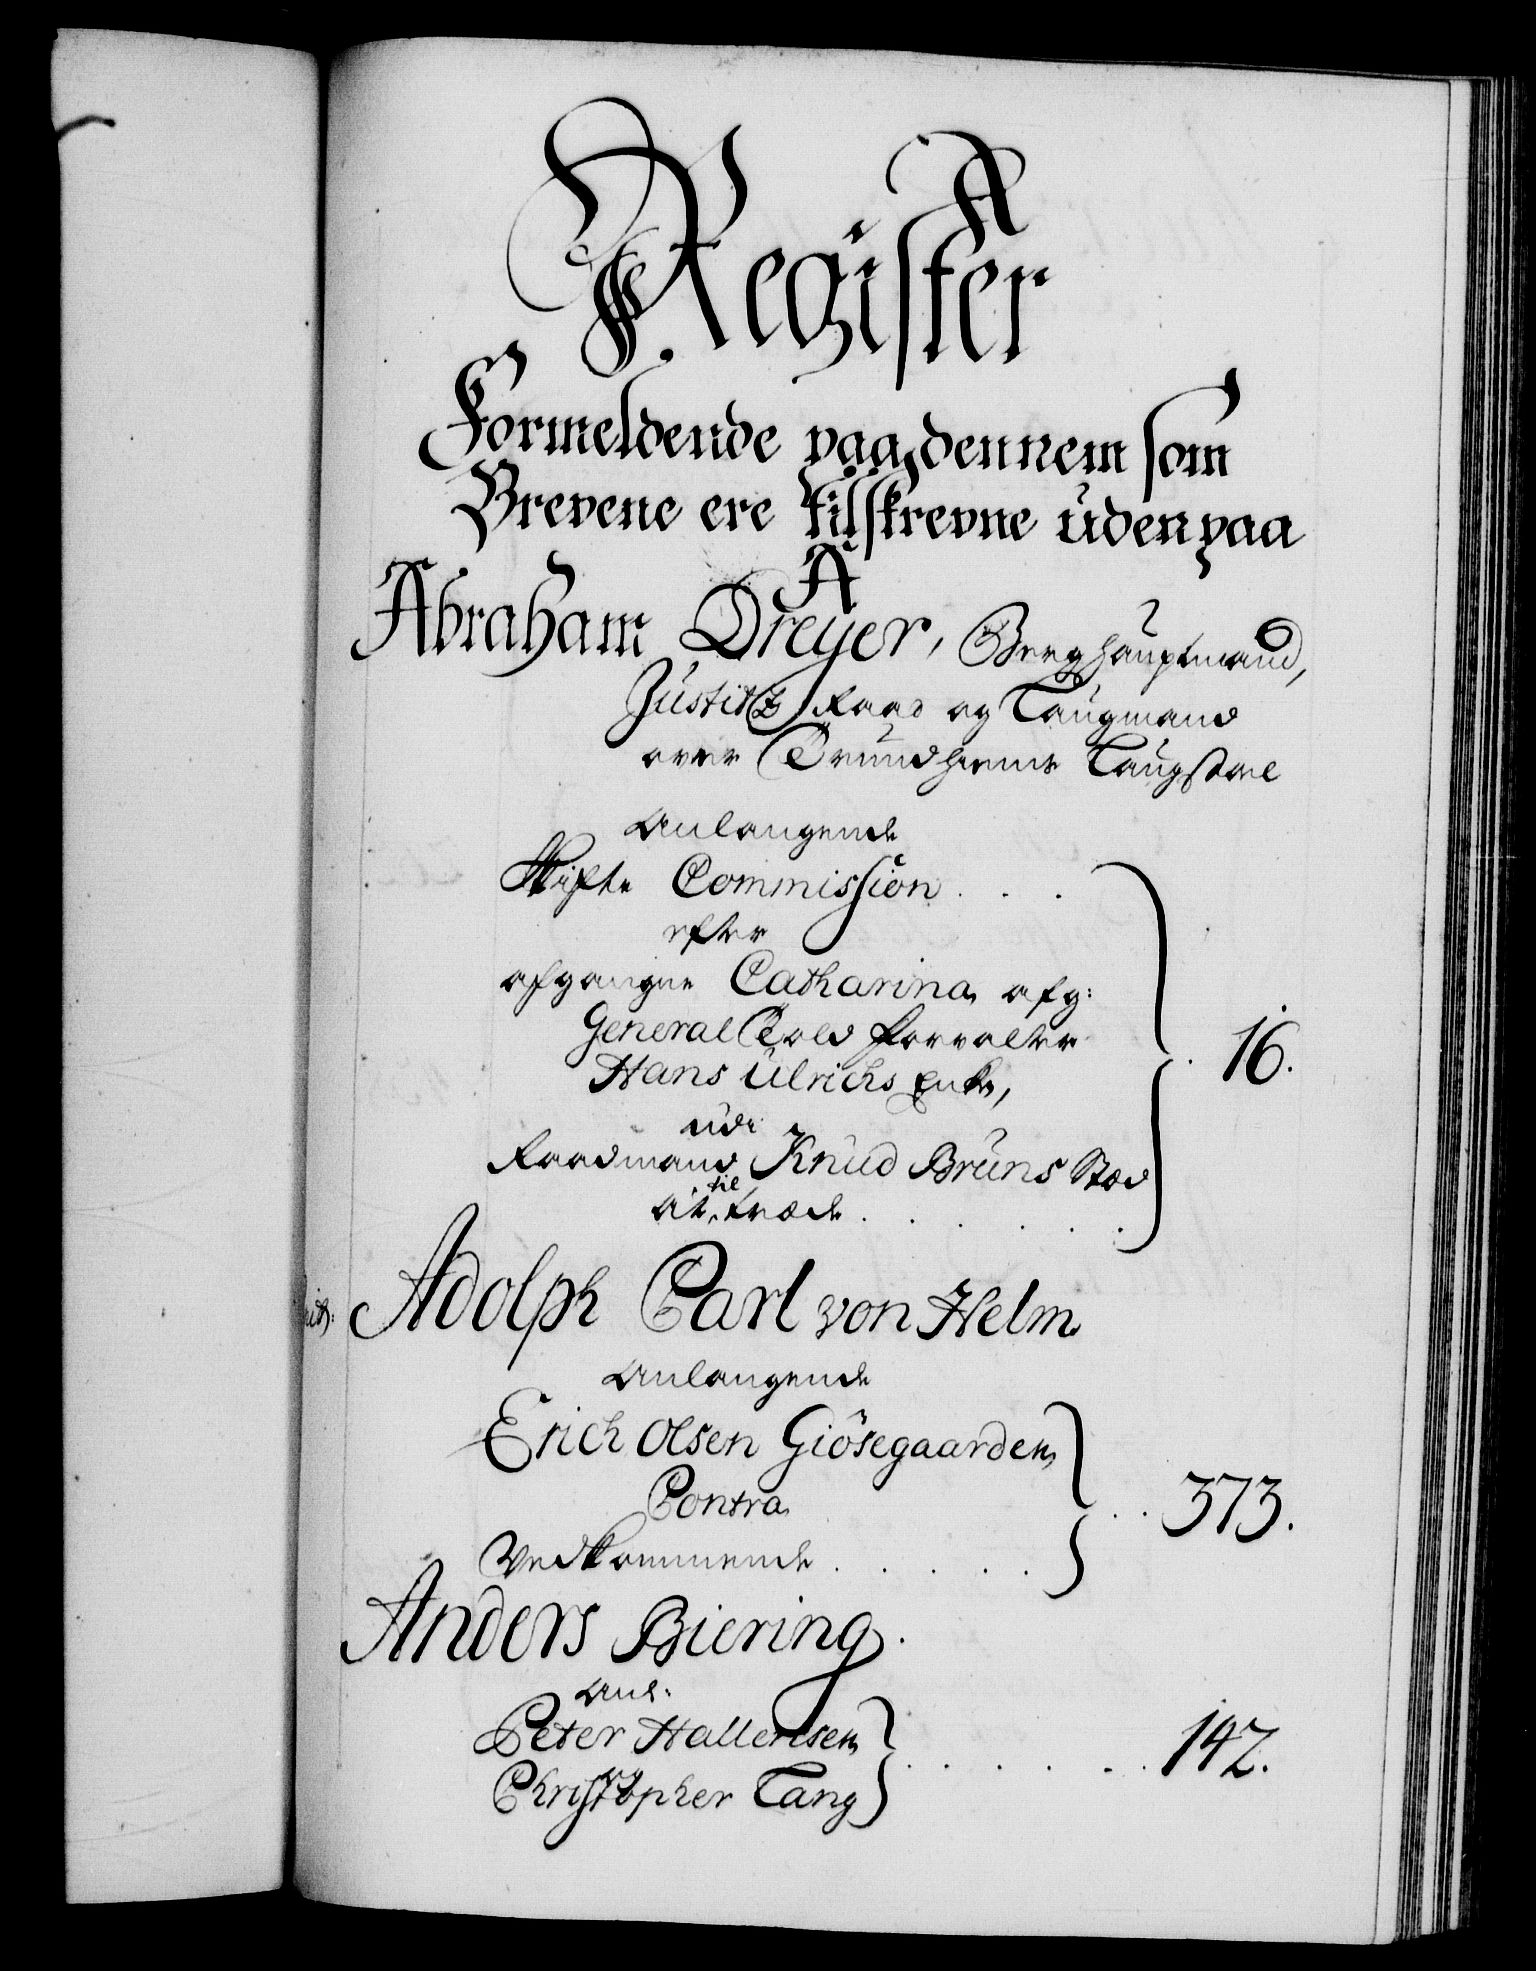 Register
Formeldende paa dennem som
Brevene ere tilskrevne uden paa
A
Abraham Dreyer, Berghauptmand,
Justitz Raad og Laugmand
over Trundhiems Laugstoel
Anlangende
Skifte Commission . . .
efter
afgangne Catharina afg:
General Told forvalter
Hans Ulrichs Enke,
udi
Raadmand Knud Bruns Stæd
at til træde . . . . . . 16.
Adolph Carl von Helm
Anlangende
Erich Olsen Giösegaarden
Contra
Vedkommende . . . . . 373.
Anders Biering.
Anl:
Peter Hallensen
og
Christopher Lang . . . . . . 142.